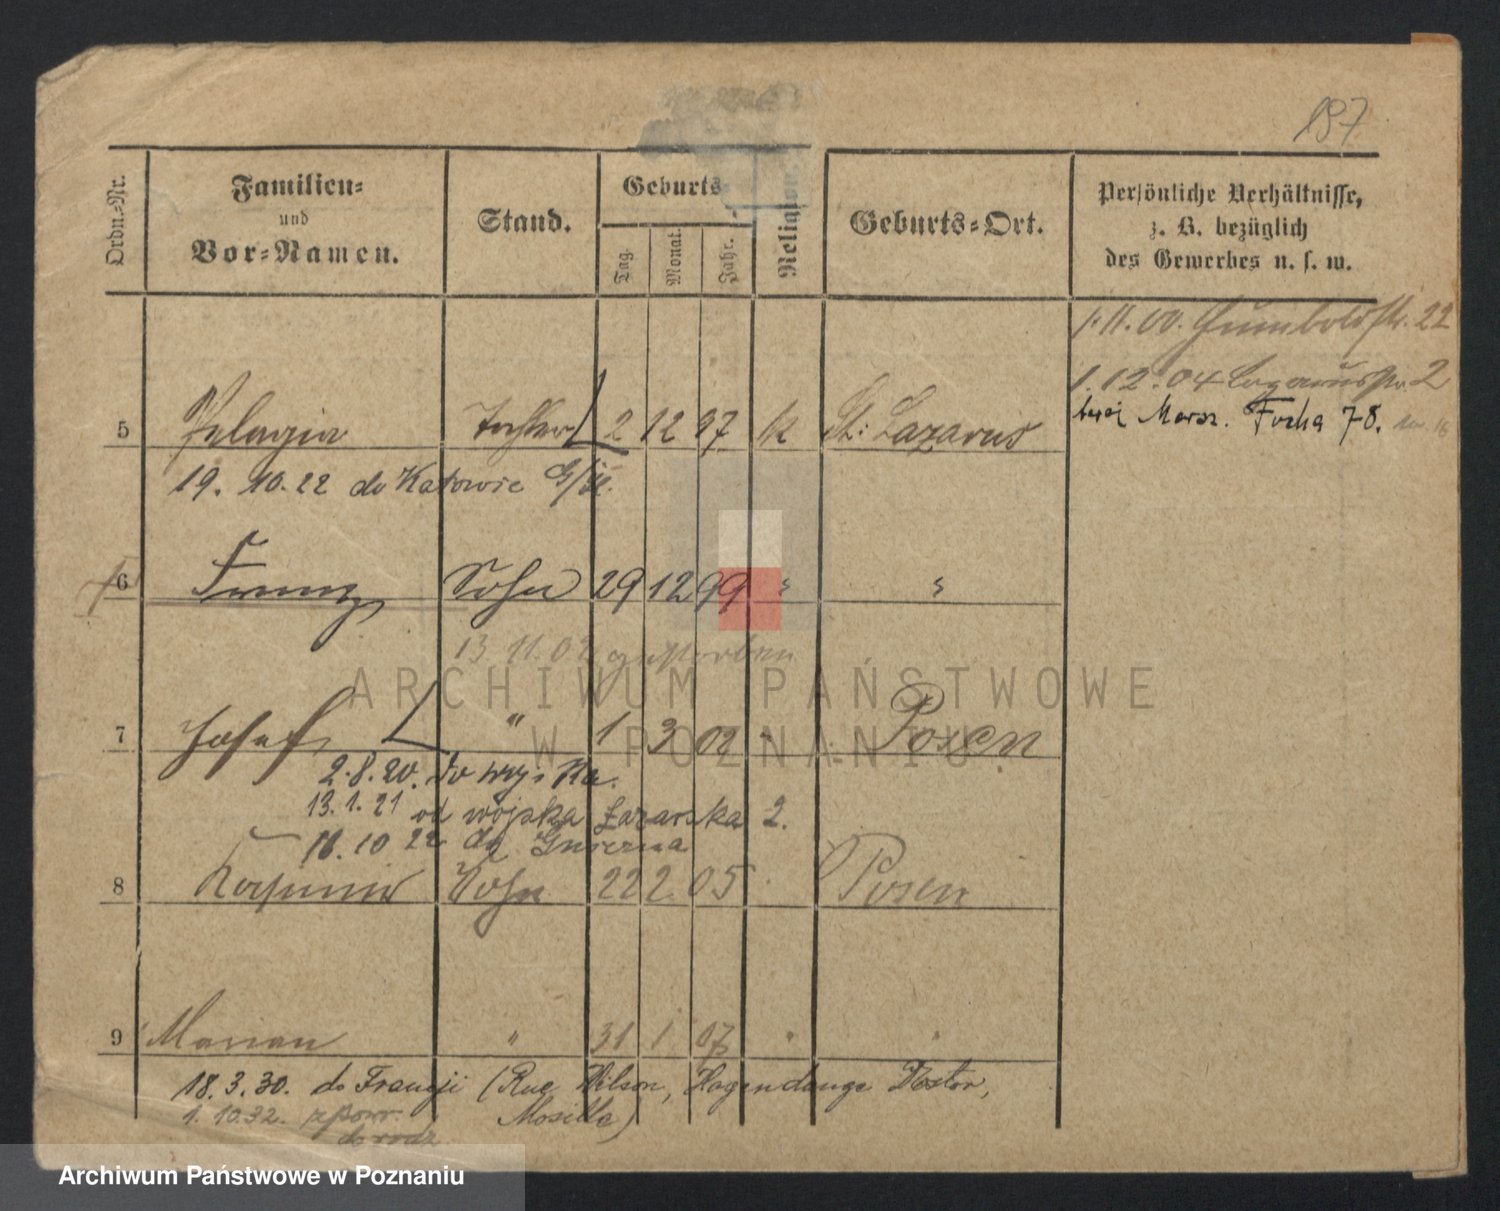 197
Ordn.-Nr.
Familien-
und
Vor-Namen.
Stand.
Geburts
Tag.
Monat.
Jahr.
Religion
Geburts-Ort.
Persönliche Verhältnisse,
z. B. bezüglich
des Gewerbes u. s. w.
1.11.00. Humboldstr. 22
1.12.04 Lazarusstr. 2
Marsz. Focha 78.
5 Pelagia Tochter 2 12 97 K St. Lazarus
19. 10. 22 do Katowic G/Śl.
6 Franz Sohn 29 12 99 " "
13 11.02 gestorben
7 Josef " 1 3 02 " Posen
2.8.20. do wojska.
13.1.21 od wojska Łazarska 2.
do Gniezna
8 Kasimir Sohn 22 2. 05 Posen
9 Marian " 31 1 07 " "
18.3.30. do Francji (Rue Wilson, Hagendange
Moselle)
1.10.32. z pow.
do rodz.
ARCHIWUM PAŃSTWOWE
W POZNANIU
Archiwum Państwowe w Poznaniu